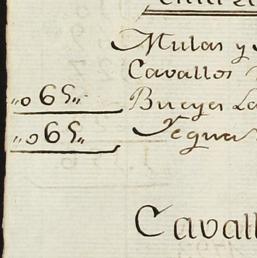 Mulas y
Cavallos
„o65„ Bueyes La
„o65„ Yeguas
Cavall